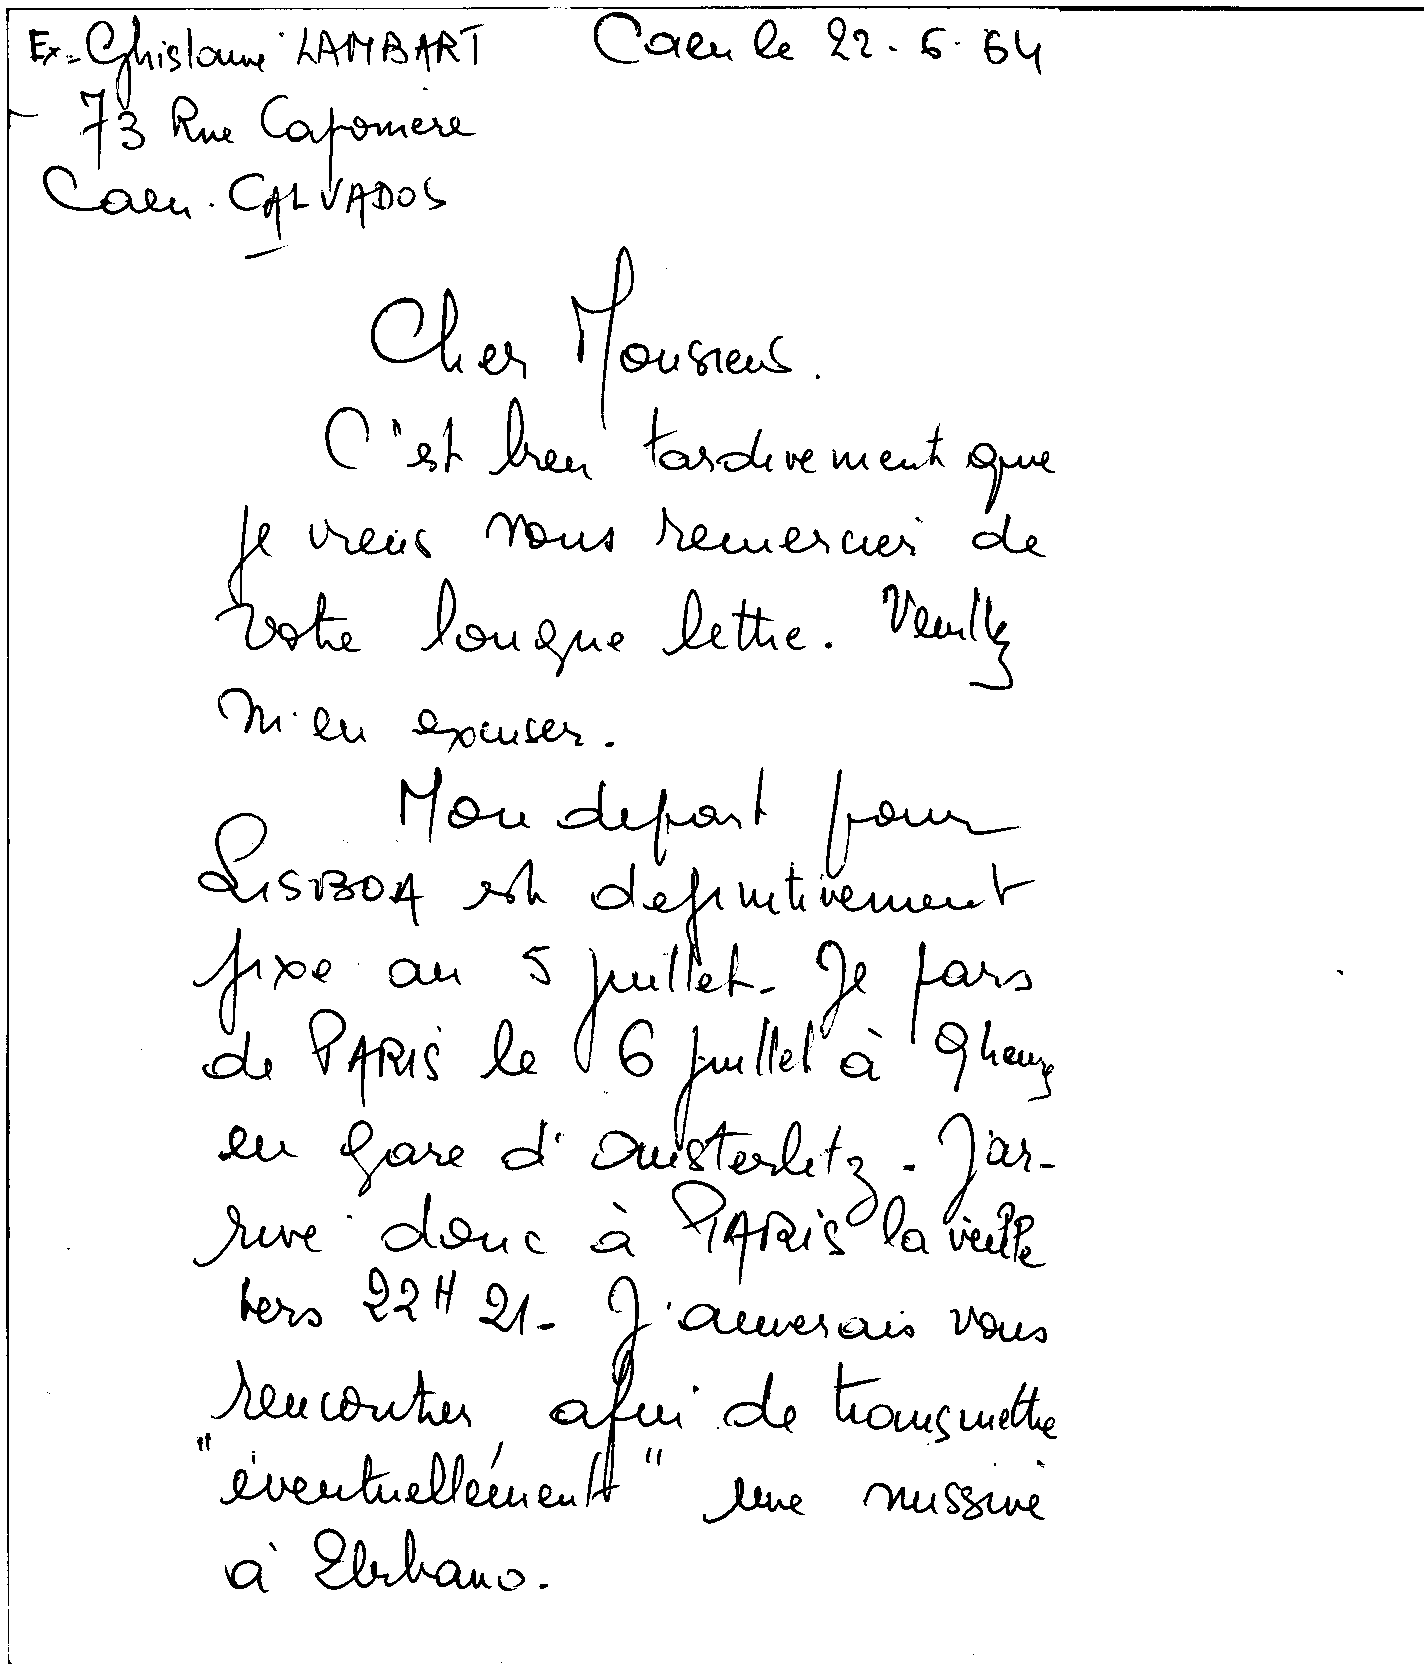 Ex: Ghislaine LAMBART Caen le 22.6.64
73 Rue Caponière
Caen. CALVADOS
Cher Monsieur.
C'est bien tardivement que
je viens vous remercier de
votre longue lettre. Veuillez
m'en excuser.
Mon depart pour
LISBOA est definitivement
fixe au 5 juillet. Je pars
de PARIS le 6 juillet à 9 heures
en gare d'Austerlitz. J'ar-
rive donc à PARIS la veille
vers 22H 21. J'aimerais vous
rencontrer afin de transmettre
"éventuellement" une missive
à